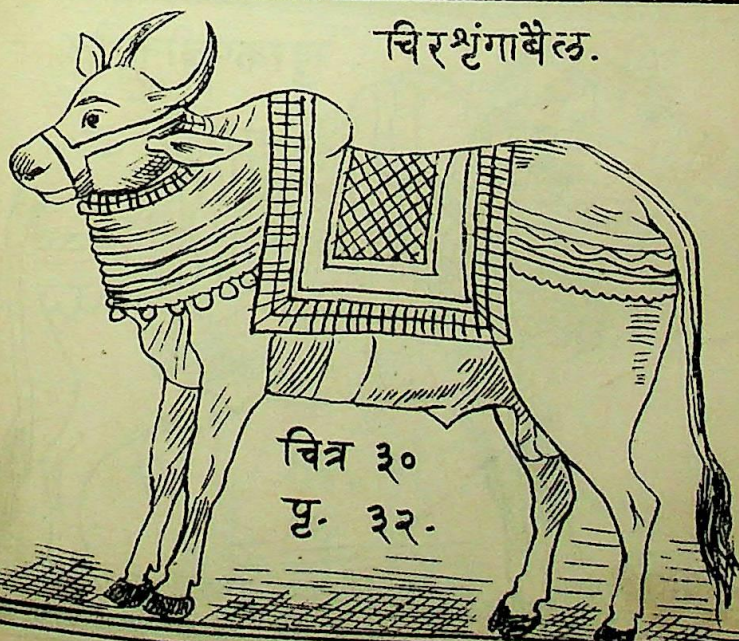 चिरशृंगाबैल.
चित्र ३०
पृ. ३२.